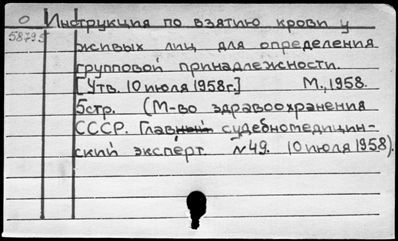 Инструкция по взятию крови у
58795
живых лиц для определения
групповой принадлежности.
[Утв. 10 июля 1958г.] М., 1958.
5стр. (М-во здравоохранения
СССР. Главный судебномедицин-
ский эксперт №49. 10 июля 1958).